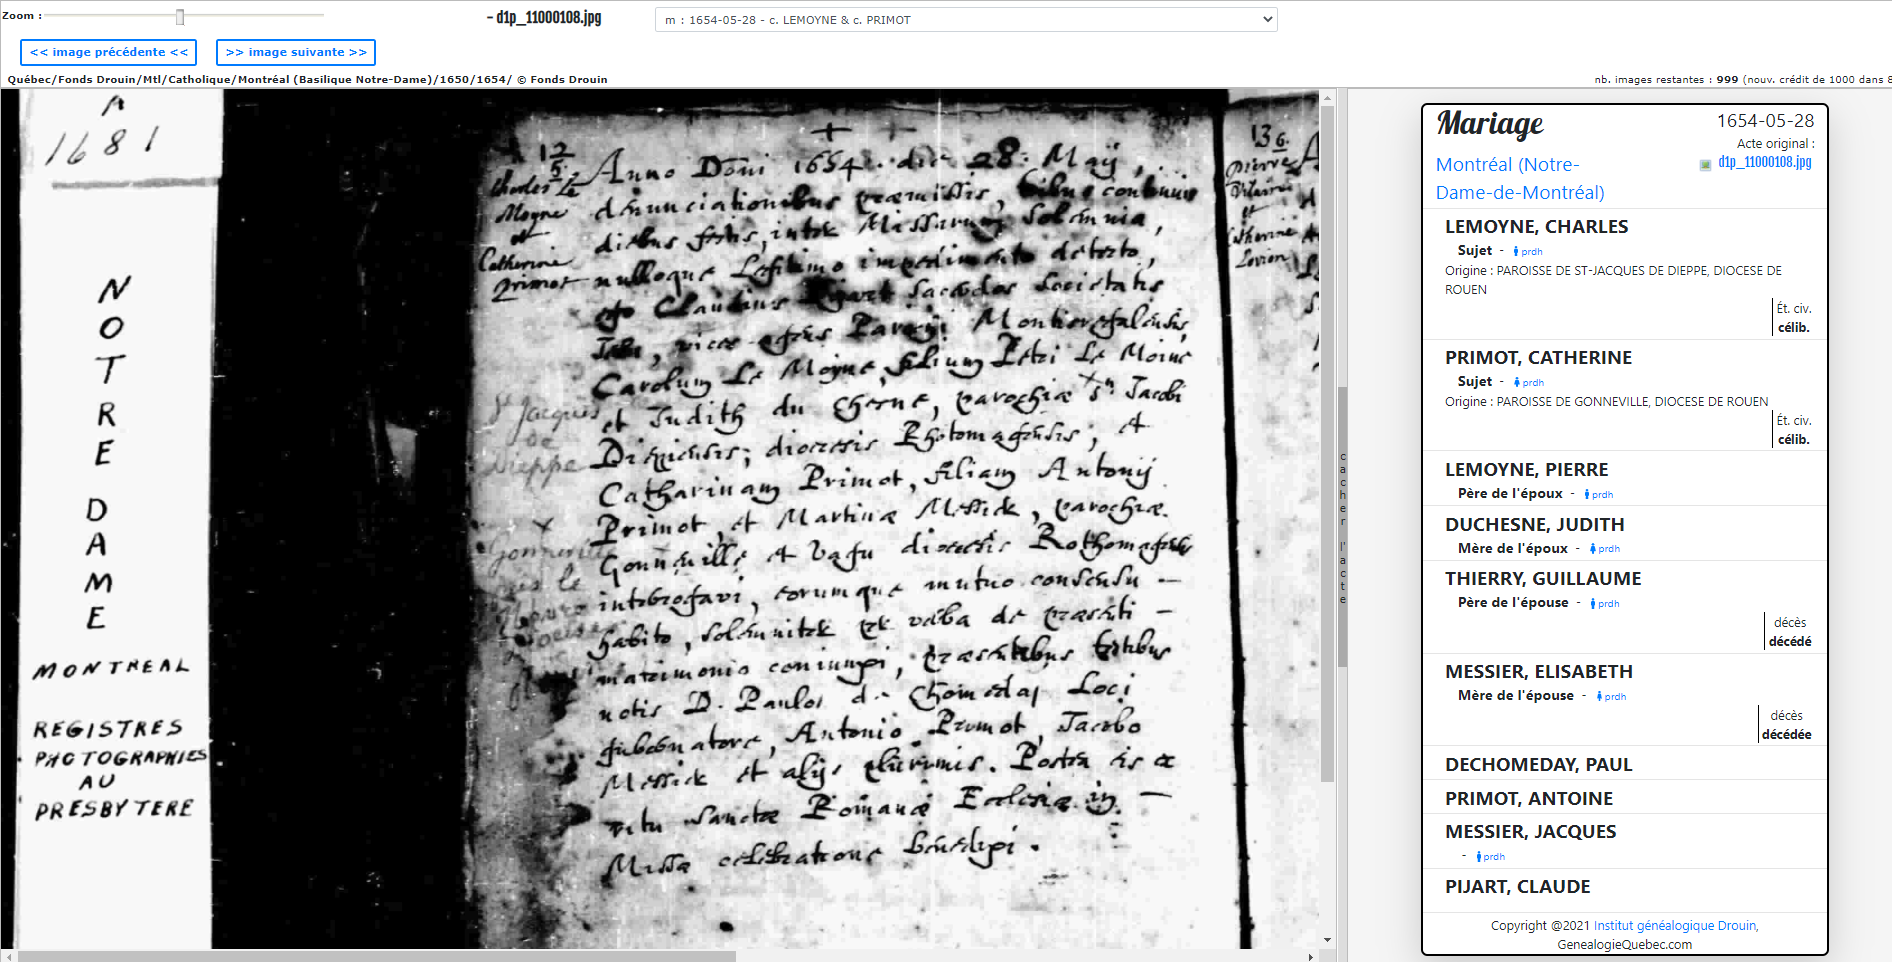 Zoom :
- d1p_11000108.jpg
m : 1654-05-28 - c. LEMOYNE & c. PRIMOT
<< image précédente <<
>> image suivante >>
Québec/Fonds Drouin/Mtl/Catholique/Montréal (Basilique Notre-Dame)/1650/1654/ © Fonds Drouin
nb. images restantes : 999 (nouv. crédit de 1000 dans 8
A
1681
NOTRE
DAME
MONTREAL
REGISTRES
PHOTOGRAPHIES
AU
PRESBYTERE
12
5
Charles Le
Moyne
et
Catherine
Primot
St Jacques
de
Dieppe
Anno Domi 1654. die 28. Maij,
denunciationibus praemissis, tribus continuis
diebus festis, inter Missarum solemnia,
nulloque Legitimo impedimento detecto,
ego Claudius Pijart sacerdos Societatis
Jesu, vices agens Parochi Montisregalensis,
Carolum Le Moyne, filium Petri Le Moine
et Judith du Chesne, parochiae Sti Jacobi
Diepensis, diocesis Rhotomagensis, et
Catharinam Primot, filiam Antonij
Primot, et Martinae Messier, parochiae
diocesis Rothomagensis
interrogavi, eorumque mutuo consensu -
habito, solemniter per verba de praesenti -
matrimonio coniunxi, praesentibus testibus
notis D. Paulo de Chomeday Loci
gubernatore, Antonio Primot, Jacobo
Messier et alijs plurimis. Postea eis ex
ritu Sanctae Romanae Ecclesiae in -
Missae celebratione benedixi.
136.
Pierre
et
Catherine
Mariage
1654-05-28
Acte original :
d1p_11000108.jpg
Montréal (Notre-
Dame-de-Montréal)
LEMOYNE, CHARLES
Sujet - prdh
Origine : PAROISSE DE ST-JACQUES DE DIEPPE, DIOCESE DE
ROUEN
Ét. civ.
célib.
PRIMOT, CATHERINE
Sujet - prdh
Origine : PAROISSE DE GONNEVILLE, DIOCESE DE ROUEN
Ét. civ.
célib.
LEMOYNE, PIERRE
Père de l'époux - prdh
DUCHESNE, JUDITH
Mère de l'époux - prdh
THIERRY, GUILLAUME
Père de l'épouse - prdh
décès
décédé
MESSIER, ELISABETH
Mère de l'épouse - prdh
décès
décédée
DECHOMEDAY, PAUL
PRIMOT, ANTOINE
MESSIER, JACQUES
- prdh
PIJART, CLAUDE
Copyright @2021 Institut généalogique Drouin,
GenealogieQuebec.com
cacher l'acte